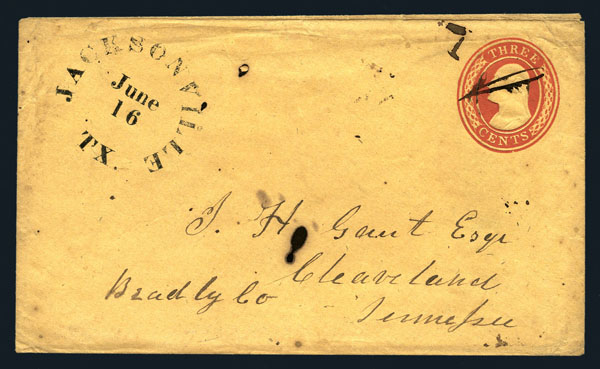 JACKSONVILLE TX
June
16
1
THREE
CENTS
J. H. Gaut Esqr
Cleaveland
Bradly Co
Tennessee